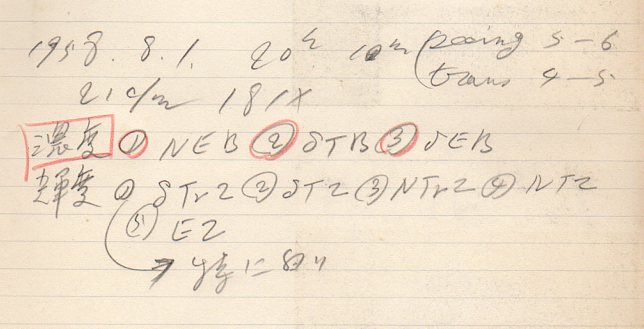 1958. 8. 1. 20h 10m (seeing 5-6
trans 4-5
21cm 181X
濃度 ① NEB ② STB ③ SEB
輝度 ① STrZ ② STZ ③ NTrZ ④ NTZ
⑤ EZ
→ 特に明り